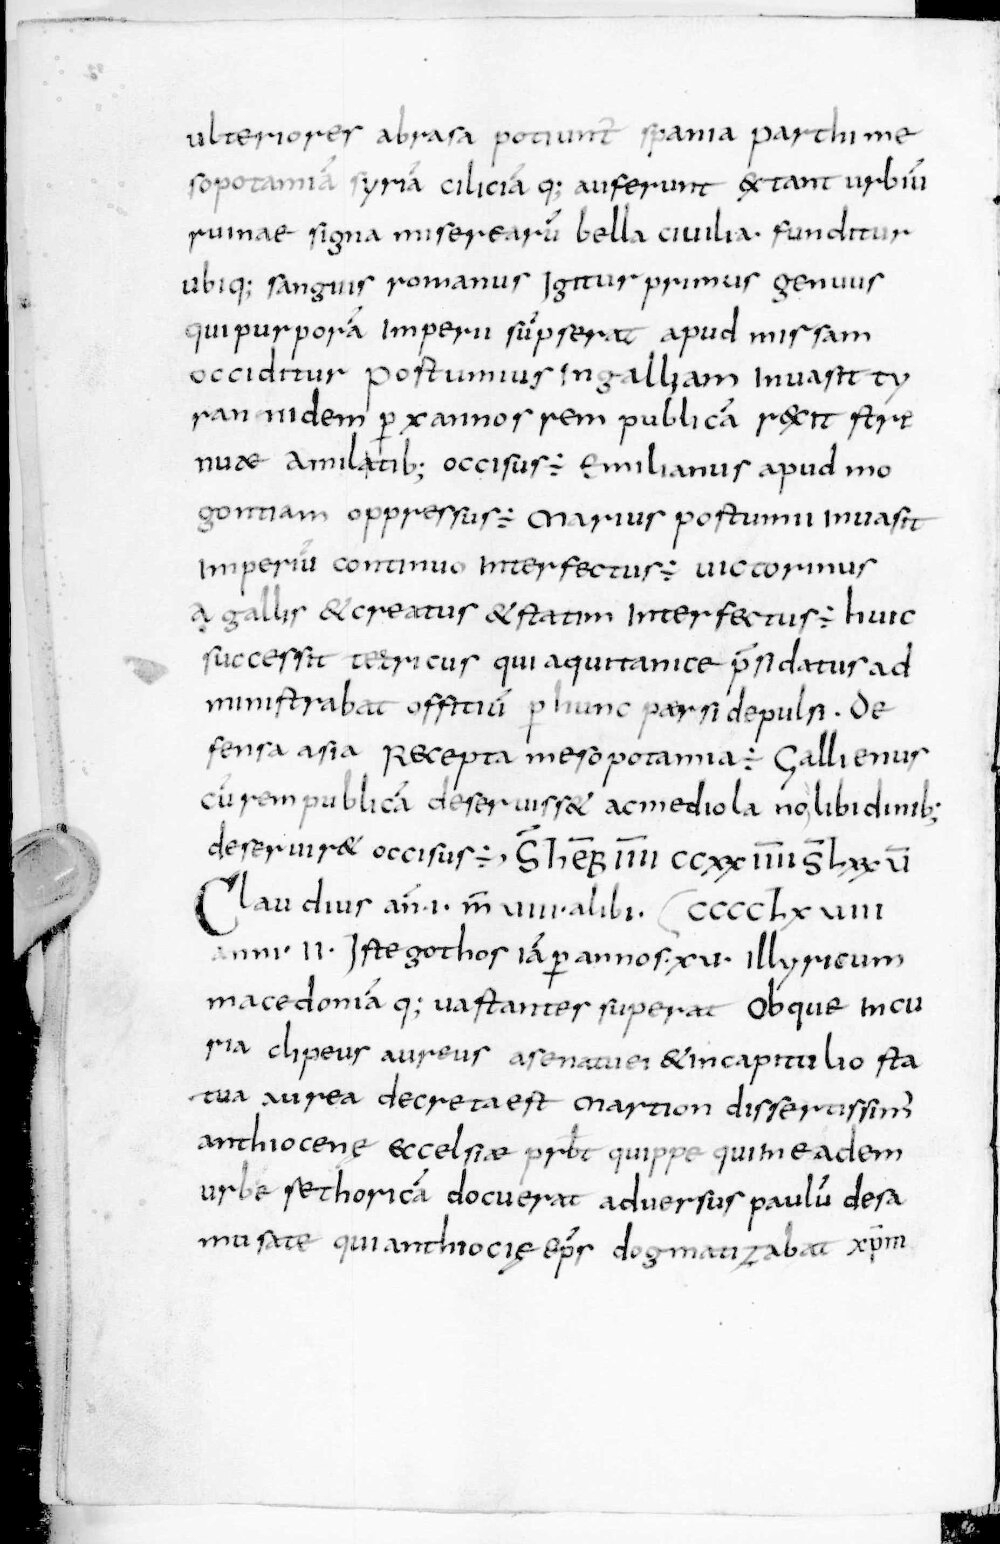 ulteriores abrasa potiunt̄ spania parthi me
sopotamiā syriā ciliciā q; auferunt &tant urbiū
ruinae signa miserearū bella ciuilia. funditur
ubiq; sanguis romanus Igitur primus genuus
qui purporā imperii sūpserat apud missam
occiditur postumius in galliam inuasit ty
rannidem ꝑ x annos rem publicā r&it stre
nuae Amilatib; occisus :· Emilianus apud mo
gontiam oppressus :· Marius postumii inuasit
imperiū continuo interfectus :· uictorinus
A gallis &creatus &statim interfectus :· huic
successit tetricus qui aquitanice p̄sidatus ad
ministrabat offitiū ꝑ hunc parsi depulsi. De
fensa asia Recepta mesopotamia :· Gallienus
cū rem publicā deseruiss& ac mediola no libidinib;
deseruir& occisus :·, S̄ hēB̄ īīīī ccxx īīīī S̄ lxx ūī
Claudius an̄. i. m̄ uiiii. alibi. ( cccclxuiii
anni. ii. Iste gothos iā ꝑ annos. xu. illyricum
macedoniā q; uastantes superat Obque in cu
ria clipeus aureus asenatuei &incapitulio sta
tua aurea decreta est Martion dissertissim̄
anthiocenę eccelsiae prb̄t quippe qui in eadem
urbe rethoricā docuerat aduersus paulū desa
musate qui anthiocię ep̄s dogmatizabat xp̄m